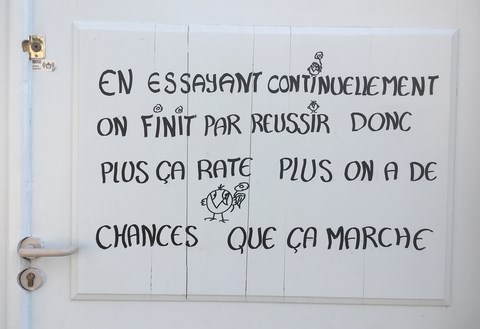 EN ESSAYANT CONTINUELLEMENT
ON FINIT PAR REUSSIR DONC
PLUS ÇA RATE PLUS ON A DE
CHANCES QUE ÇA MARCHE